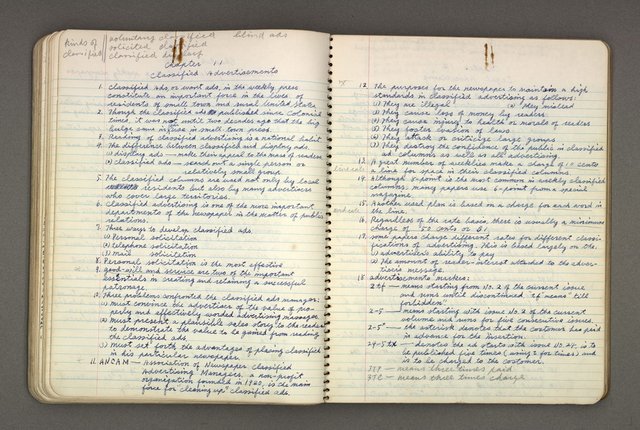 Kinds of
classified
voluntary classified blind ads
solicited classified
classified display
Chapter 11
Classified Advertisements
1. Classified ads or want ads, in the weekly press
constitute an important force in the lives of
residents of small town and rural United States.
2. Though the classified ads established since Colonial
times, it was not until two decades ago that the big
bulge came in use in small town press.
3. Reading of classified advertising is a national habit.
4. The difference between classified and display ads.
(1) display ads — make them appeal to the mass of readers
(2) classified ads — search out a single person or
relatively small group
5. The classified columns are used not only by local
residents but also by many advertisers
who cover large territories.
6. Classified advertising is one of the more important
departments of the newspaper in the matter of public
relations.
7. Three ways to develop classified ads
(1) Personal solicitation
(2) telephone solicitation
(3) mail solicitation
8. Personal solicitation is the most effective
9. good-will and service are two of the important
essentials in creating and retaining a successful
patronage.
10. Three problems confronted the classified ads manager:
(1) must convince the advertisers of the value of pro-
perly and effectively worded advertising messages.
(2) must present a plausible sales story to the reader
to demonstrate the value to be gained from reading
the classified ads.
(3) must set forth the advantages of placing classified
in his particular newspaper
11. ANCAM — Association of Newspaper Classified
Advertising Managers, a non-profit
organization founded in 1920, is the main
force for "cleaning up" classified ads.
12. The purposes for the newspaper to maintain a high
standards in classified advertising as follows:
(1) They are illegal (2) They mislead
(3) They cause loss of money by readers
(4) They cause injury to health or morals of readers
(5) They foster evasion of laws
(6) They attack or criticize large groups
(7) They destroy the confidence of the public in classified
ad columns as well as all advertising.
13. A great number of weeklies make a charge of 10 cents
a line for space in their classified columns.
14. Although 8-point is the most common in weekly classified
columns, many papers use 6-point from a special
magazine.
15. Another used plan is based on a charge for each word in
the line.
16. Regardless of the rate basis, there is usually a minimum
charge of .50 cents or $1.
17. Some papers charge different rates for different classi-
fications of advertising. This is based largely on the.
(1) advertiser's ability to pay
(2) The amount of reader-interest attached to the adver-
tiser's message.
18. advertisements markers:
2tf — means starting from No. 2 of the current issue
and runs until discontinued. "tf means "till
forbidden"
2-5 — means starting with issue No. 2 of the current
volume and runs for five consecutive issues.
2-5* — the asterisk denotes that the customer has paid
in advance for the insertion.
24-5tx — denotes the ad starts with issue No. 24, is to
be published five times (using t for times) and
is to be charged to the customer.
3TP — means three times paid
3TC — means three times charge